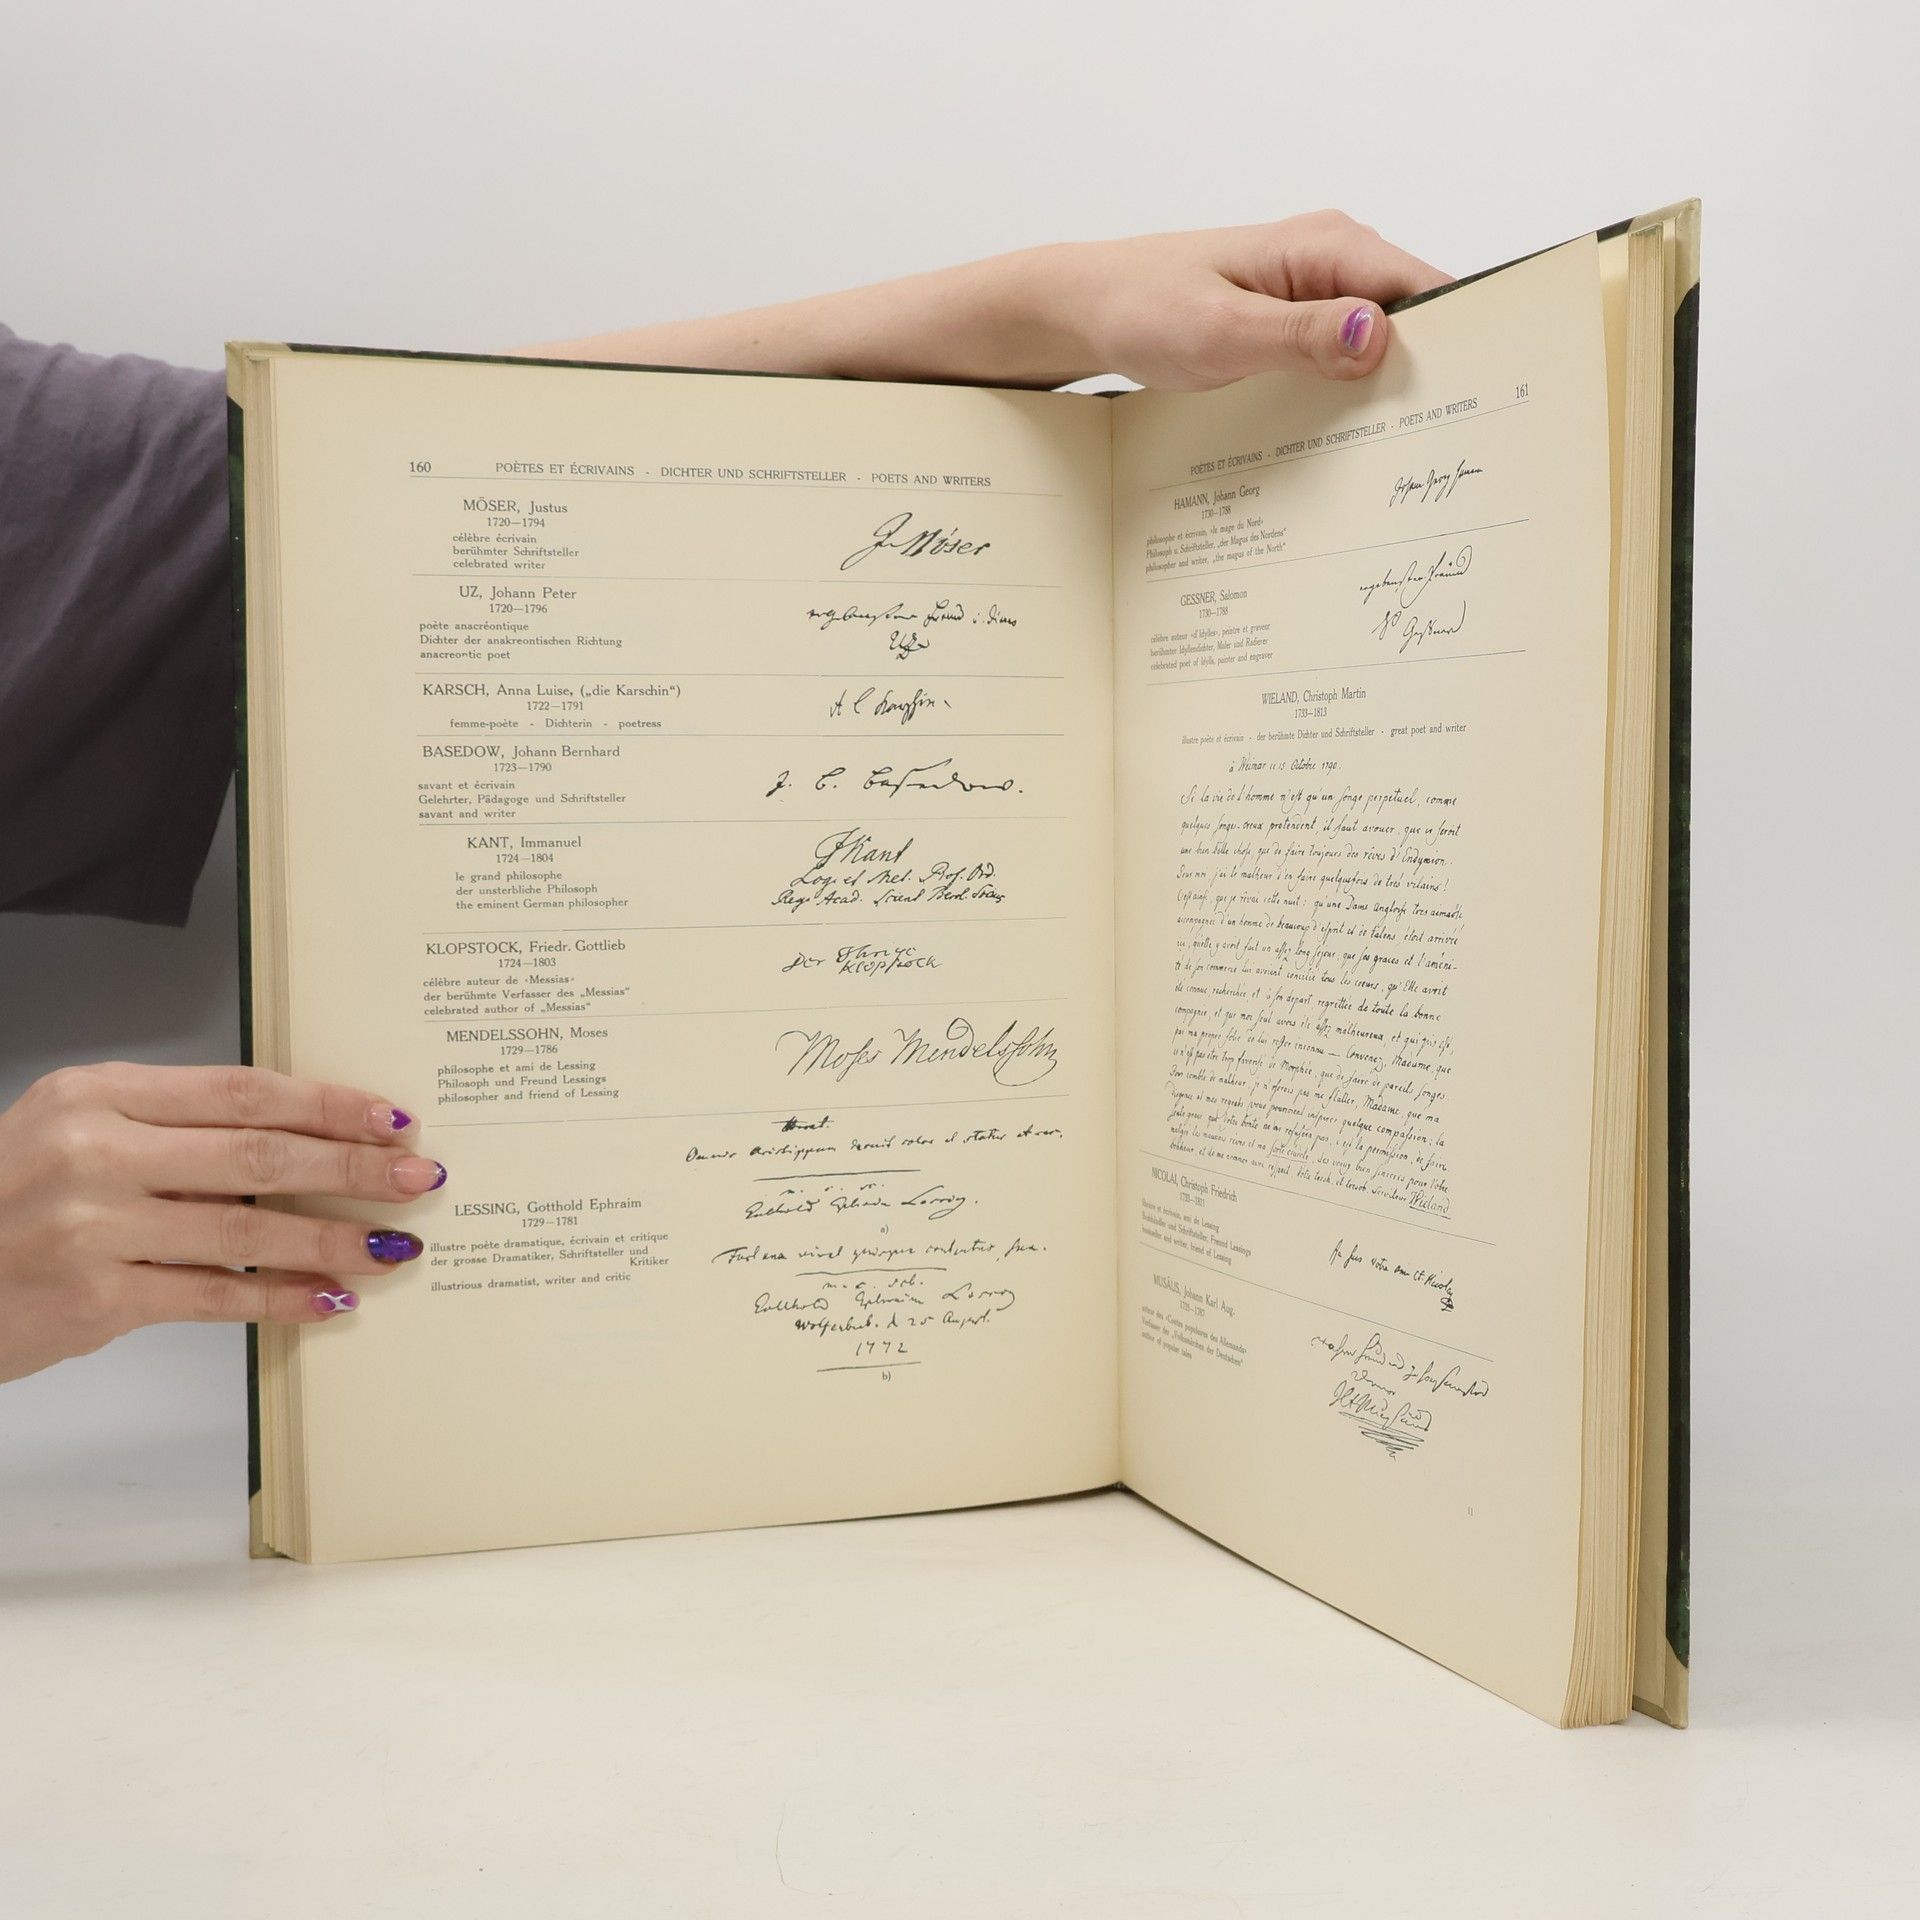 160 POÈTES ET ÉCRIVAINS - DICHTER UND SCHRIFTSTELLER - POETS AND WRITERS
MÖSER, Justus
1720—1794
célèbre écrivain
berühmter Schriftsteller
celebrated writer
J. Möser
UZ, Johann Peter
1720—1796
poète anacréontique
Dichter der anakreontischen Richtung
anacreontic poet
Uz
KARSCH, Anna Luise, („die Karschin“)
1722—1791
femme-poète - Dichterin - poetress
A L Karschin
BASEDOW, Johann Bernhard
1723—1790
savant et écrivain
Gelehrter, Pädagoge und Schriftsteller
savant and writer
J. B. Basedow.
KANT, Immanuel
1724—1804
le grand philosophe
der unsterbliche Philosoph
the eminent German philosopher
I Kant
Log. et Met. Prof. Ord.
Reg. Acad. Scient Berol. Socius
KLOPSTOCK, Friedr. Gottlieb
1724—1803
célèbre auteur de ‹Messias›
der berühmte Verfasser des „Messias“
celebrated author of „Messias“
Der Ihrige
Klopstock
MENDELSSOHN, Moses
1729—1786
philosophe et ami de Lessing
Philosoph und Freund Lessings
philosopher and friend of Lessing
Moses Mendelssohn
LESSING, Gotthold Ephraim
1729—1781
illustre poète dramatique, écrivain et critique
der grosse Dramatiker, Schriftsteller und
Kritiker
illustrious dramatist, writer and critic
Horat.
Omnis Aristippum decuit color et status et res.
Gotthold Ephraim Lessing.
a)
Gotthold Ephraim Lessing
Wolfenbüt. d 25 August.
1772
b)
POÈTES ET ÉCRIVAINS - DICHTER UND SCHRIFTSTELLER - POETS AND WRITERS 161
HAMANN, Johann Georg
1730—1788
philosophe et écrivain, ‹le mage du Nord›
Philosoph u. Schriftsteller, „der Magus des Nordens“
philosopher and writer, „the magus of the North“
Johann Georg Hamann
GESSNER, Salomon
1730—1788
célèbre auteur ‹d'Idylles›, peintre et graveur
berühmter Idyllendichter, Maler und Radierer
celebrated poet of Idylls, painter and engraver
Gessner
WIELAND, Christoph Martin
1733—1813
illustre poète et écrivain - der berühmte Dichter und Schriftsteller - great poet and writer
à Weimar ce 15 Octobre 1790.
Si la vie de l'homme n'est qu'un songe perpetuel, comme
quelques songes-creux pretendent, il faut avouer, que ce seroit
une bien belle chose, que de faire toujours des rêves d'Endymion.
Pour moi j'ai le malheur d'en faire quelquefois de très vilains!
C'est ainsi, que je rêvai cette nuit: qu'une Dame Angloise tres aimable
accompagnée d'un homme de beaucoup d'esprit et de talens, étoit arrivée
ici, qu'elle y avoit fait un assez long sejour, que ses graces et l'améni-
té de son commerce lui avoient concilié tous les coeurs, qu'Elle avoit
été connue, recherchée, et à son départ regrettée de toute la bonne
compagnie, et que moi seul avois été assez malheureux, et qui pis est,
par ma propre folie de lui rester inconnu — Convenez, Madame, que
ce n'est pas être trop favorisé de Morphée, que de faire de pareils songes.
Pour comble de malheur, je n'oserois pas me flatter, Madame, que ma
et mes regrets vous pourroient inspirer quelque compassion; la
seule grace que Votre bonté ne me refusera pas, c'est la permission, de faire
malgré les mauvais reves et ma sorte etoile, des voeux bien sinceres pour Votre
bonheur, et de me nommer avec respect Votre tres h. et tres ob. Serviteur Wieland
NICOLAI, Christoph Friedrich
1733—1811
libraire et écrivain, ami de Lessing
Buchhändler und Schriftsteller, Freund Lessings
bookseller and writer, friend of Lessing
Je suis votre ami Cf. Nicolai
MUSÄUS, Johann Karl Aug.
1735—1787
auteur des ‹Contes populaires des Allemands›
Verfasser der „Volksmärchen der Deutschen“
author of popular tales
11